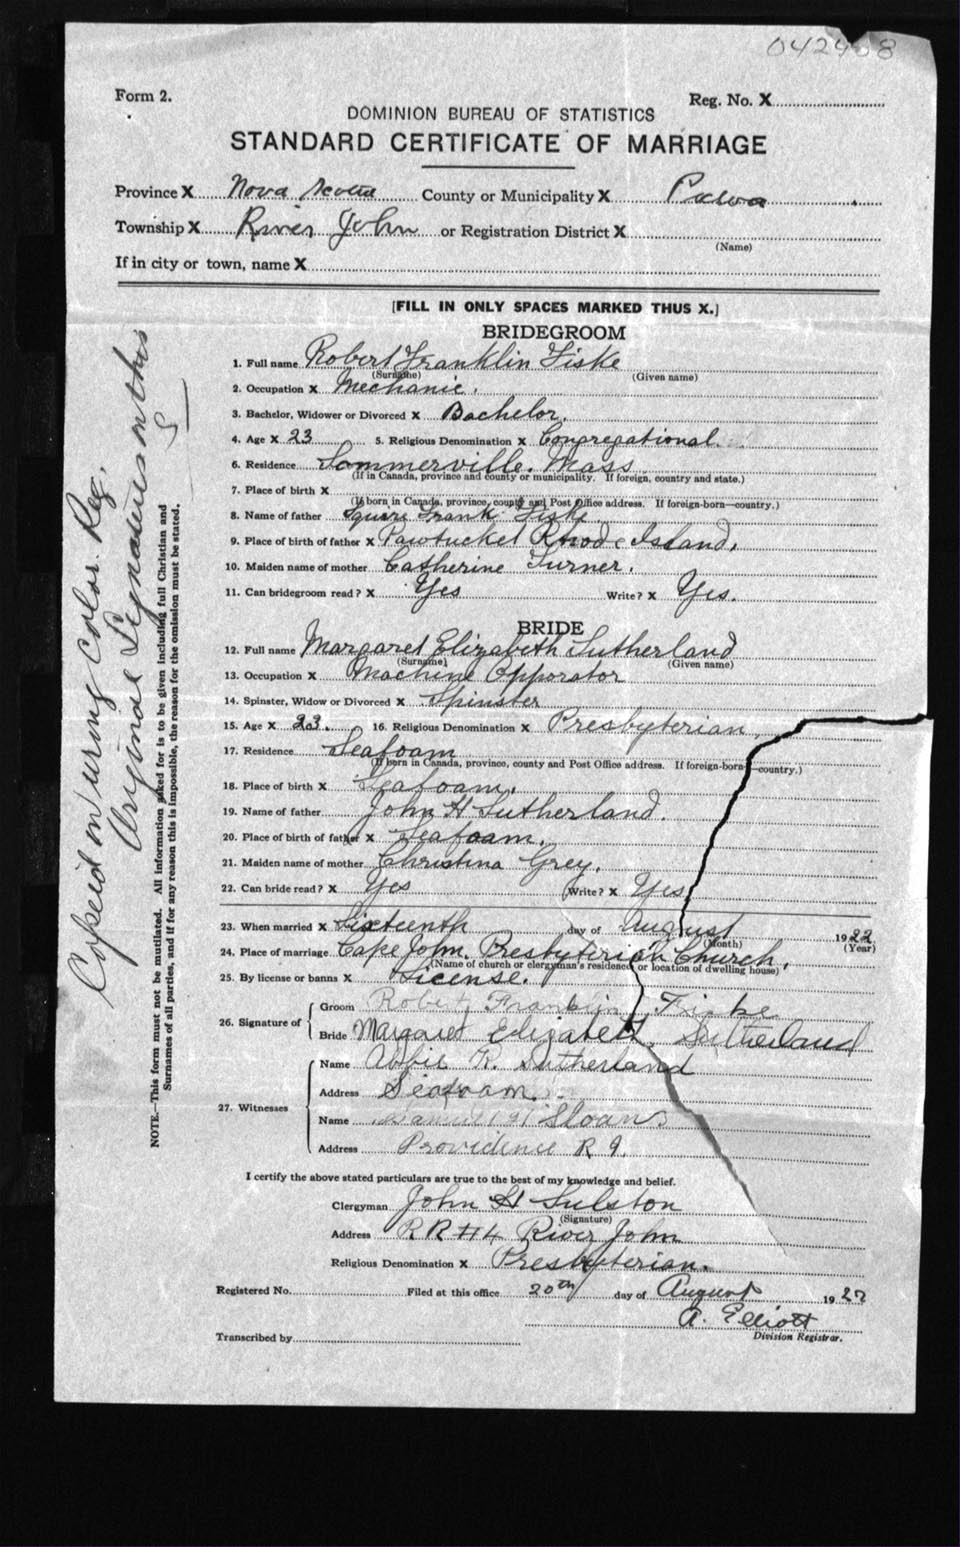 Form 2.
Reg. No. X
DOMINION BUREAU OF STATISTICS
STANDARD CERTIFICATE OF MARRIAGE
Province X Nova Scotia County or Municipality X
Township X River John or Registration District X
(Name)
If in city or town, name X
[FILL IN ONLY SPACES MARKED THUS X.]
BRIDEGROOM
1. Full name Robert Franklin Fiske
(Surname) (Given name)
2. Occupation X Mechanic.
3. Bachelor, Widower or Divorced X Bachelor.
4. Age X 23 5. Religious Denomination X Congregational.
6. Residence Sommerville. Mass
(If in Canada, province and county or municipality. If foreign, country and state.)
7. Place of birth X
(If born in Canada, province, county and Post Office address. If foreign-born—country.)
8. Name of father Squire Frank Fiske
9. Place of birth of father X Pawtucket Rhode Island.
10. Maiden name of mother Catherine Turner.
11. Can bridegroom read? X Yes Write? X Yes.
BRIDE
12. Full name Margaret Elizabeth Sutherland
(Surname) (Given name)
13. Occupation X Machine Opporator
14. Spinster, Widow or Divorced X Spinster
15. Age X 23. 16. Religious Denomination X Presbyterian.
17. Residence Seafoam
(If born in Canada, province, county and Post Office address. If foreign-born—country.)
18. Place of birth X Seafoam.
19. Name of father John H Sutherland.
20. Place of birth of father X Seafoam.
21. Maiden name of mother Christina Grey.
22. Can bride read? X Yes Write? X Yes
23. When married X Sixteenth day of August 1922
(Month) (Year)
24. Place of marriage Cape John. Presbyterian Church.
(Name of church or clergyman's residence or location of dwelling house)
25. By license or banns X License.
26. Signature of
Groom Robert Franklin Fiske
Bride Margaret Elizabeth Sutherland
27. Witnesses
Name Abbie R. Sutherland
Address Seafoam.
Name Sloan
Address Providence R I.
I certify the above stated particulars are true to the best of my knowledge and belief.
Clergyman John H
(Signature)
Address R R #4 River John
Religious Denomination X Presbyterian.
Registered No. Filed at this office 20th day of August 1922
A. Elliott
Division Registrar.
Transcribed by
NOTE.—This form must not be mutilated. All information asked for is to be given including full Christian and
Surnames of all parties, and if for any reason this is impossible, the reason for the omission must be stated.
Copied on wrong color Reg.
Original Signatures on this